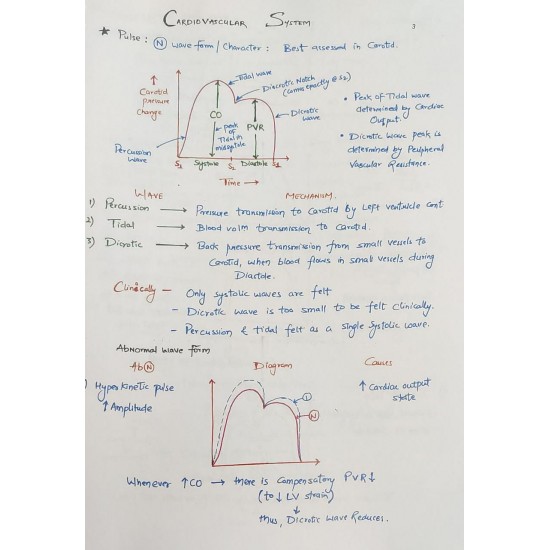 CARDIOVASCULAR SYSTEM
3
★ Pulse: Ⓝ wave form / Character: Best assessed in Carotid.
↑ Carotid pressure change
Tidal wave
Dicrotic Notch
(comes exactly @ S2)
CO
peak of Tidal in midsystole
PVR
Dicrotic wave
Percussion wave
S1 Systole S2 Diastole S1
Time →
• Peak of Tidal wave
determined by Cardiac
Output.
• Dicrotic wave peak is
determined by Peripheral
Vascular Resistance.
WAVE MECHANISM.
1) Percussion → Pressure transmission to Carotid by Left ventricle cont
2) Tidal → Blood volm transmission to Carotid.
3) Dicrotic → Back pressure transmission from small vessels to
Carotid, when blood flows in small vessels during
Diastole.
Clinically – Only systolic waves are felt
- Dicrotic wave is too small to be felt clinically.
- Percussion & tidal felt as a single systolic wave.
Abnormal wave form
AbⓃ Diagram Causes
) Hyperkinetic pulse
↑ Amplitude
①
Ⓝ
↑ Cardiac output
state
Whenever ↑CO → there is compensatory PVR↓
(to ↓ LV strain)
↓
thus, Dicrotic wave Reduces.